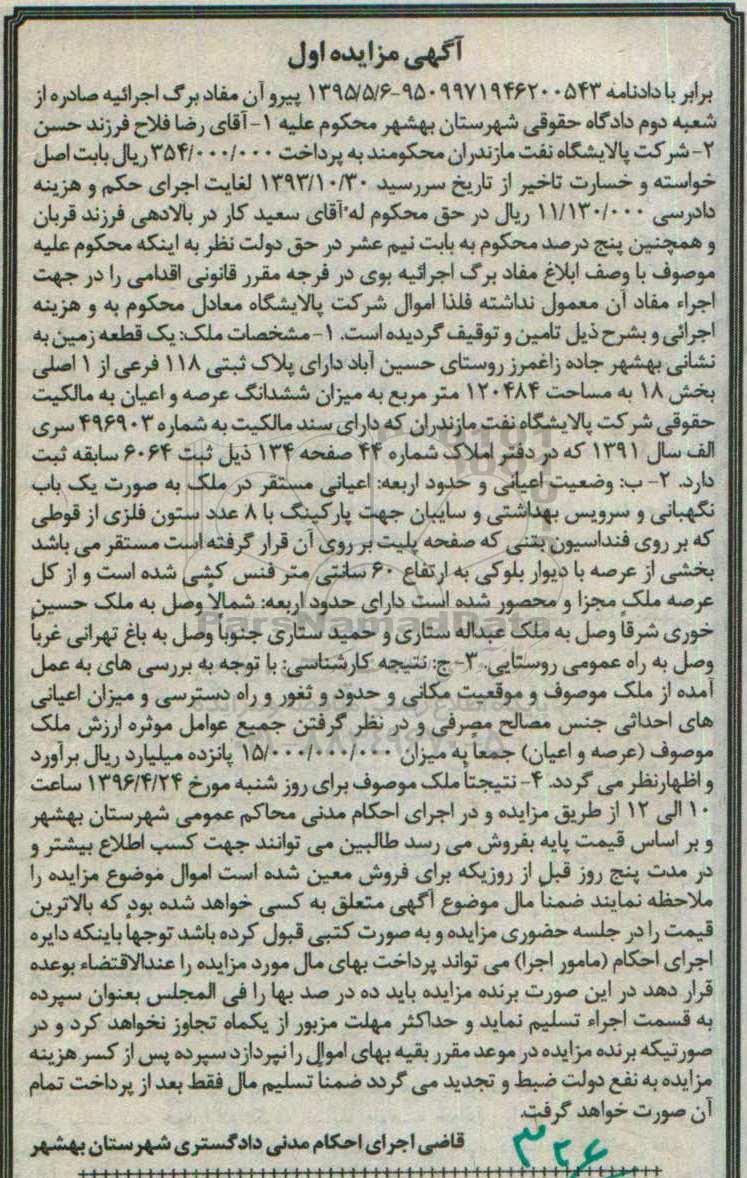 آگهی مزایده اول
برابر با دادنامه ۹۵۰۹۹۷۱۹۴۶۲۰۰۵۴۳-۱۳۹۵/۵/۶ پیرو آن مفاد برگ اجرائیه صادره از
شعبه دوم دادگاه حقوقی شهرستان بهشهر محکوم علیه ۱- آقای رضا فلاح فرزند حسن
۲- شرکت پالایشگاه نفت مازندران محکومند به پرداخت ۳۵۴/۰۰۰/۰۰۰ ریال بابت اصل
خواسته و خسارت تاخیر از تاریخ سررسید ۱۳۹۳/۱۰/۳۰ لغایت اجرای حکم و هزینه
دادرسی ۱۱/۱۳۰/۰۰۰ ریال در حق محکوم له آقای سعید کار در بالادهی فرزند قربان
و همچنین پنج درصد محکوم به بابت نیم عشر در حق دولت نظر به اینکه محکوم علیه
موصوف با وصف ابلاغ مفاد برگ اجرائیه بوی در فرجه مقرر قانونی اقدامی را در جهت
اجراء مفاد آن معمول نداشته فلذا اموال شرکت پالایشگاه معادل محکوم به و هزینه
اجرائی و بشرح ذیل تامین و توقیف گردیده است. ۱- مشخصات ملک: یک قطعه زمین به
نشانی بهشهر جاده زاغمرز روستای حسین آباد دارای پلاک ثبتی ۱۱۸ فرعی از ۱ اصلی
بخش ۱۸ به مساحت ۱۲۰۴۸۴ متر مربع به میزان ششدانگ عرصه و اعیان به مالکیت
حقوقی شرکت پالایشگاه نفت مازندران که دارای سند مالکیت به شماره ۴۹۶۹۰۳ سری
الف سال ۱۳۹۱ که در دفتر املاک شماره ۴۴ صفحه ۱۳۴ ذیل ثبت ۶۰۶۴ سابقه ثبت
دارد. ۲- ب: وضعیت اعیانی و حدود اربعه: اعیانی مستقر در ملک به صورت یک باب
نگهبانی و سرویس بهداشتی و سایبان جهت پارکینگ با ۸ عدد ستون فلزی از قوطی
که بر روی فنداسیون بتنی که صفحه پلیت بر روی آن قرار گرفته است مستقر می باشد
بخشی از عرصه با دیوار بلوکی به ارتفاع ۶۰ سانتی متر فنس کشی شده است و از کل
عرصه ملک مجزا و محصور شده است دارای حدود اربعه: شمالاً وصل به ملک حسین
خوری شرقاً وصل به ملک عبداله ستاری و حمید ستاری جنوباً وصل به باغ تهرانی غرباً
وصل به راه عمومی روستایی. ۳- ج: نتیجه کارشناسی: با توجه به بررسی های به عمل
آمده از ملک موصوف و موقعیت مکانی و حدود و ثغور و راه دسترسی و میزان اعیانی
های احداثی جنس مصالح مصرفی و در نظر گرفتن جمیع عوامل موثره ارزش ملک
موصوف (عرصه و اعیان) جمعاً به میزان ۱۵/۰۰۰/۰۰۰/۰۰۰ پانزده میلیارد ریال برآورد
و اظهارنظر می گردد. ۴- نتیجتاً ملک موصوف برای روز شنبه مورخ ۱۳۹۶/۴/۲۴ ساعت
۱۰ الی ۱۲ از طریق مزایده و در اجرای احکام مدنی محاکم عمومی شهرستان بهشهر
و بر اساس قیمت پایه بفروش می رسد طالبین می توانند جهت کسب اطلاع بیشتر و
در مدت پنج روز قبل از روزیکه برای فروش معین شده است اموال موضوع مزایده را
ملاحظه نمایند ضمناً مال موضوع آگهی متعلق به کسی خواهد شده بود که بالاترین
قیمت را در جلسه حضوری مزایده و به صورت کتبی قبول کرده باشد توجهاً باینکه دایره
اجرای احکام (مامور اجرا) می تواند پرداخت بهای مال مورد مزایده را عندالاقتضاء بوعده
قرار دهد در این صورت برنده مزایده باید ده در صد بها را فی المجلس بعنوان سپرده
به قسمت اجراء تسلیم نماید و حداکثر مهلت مزبور از یکماه تجاوز نخواهد کرد و در
صورتیکه برنده مزایده در موعد مقرر بقیه بهای اموال را نپردازد سپرده پس از کسر هزینه
مزایده به نفع دولت ضبط و تجدید می گردد ضمناً تسلیم مال فقط بعد از پرداخت تمام
آن صورت خواهد گرفت.
قاضی اجرای احکام مدنی دادگستری شهرستان بهشهر
۳۲۶
ParsNamadData